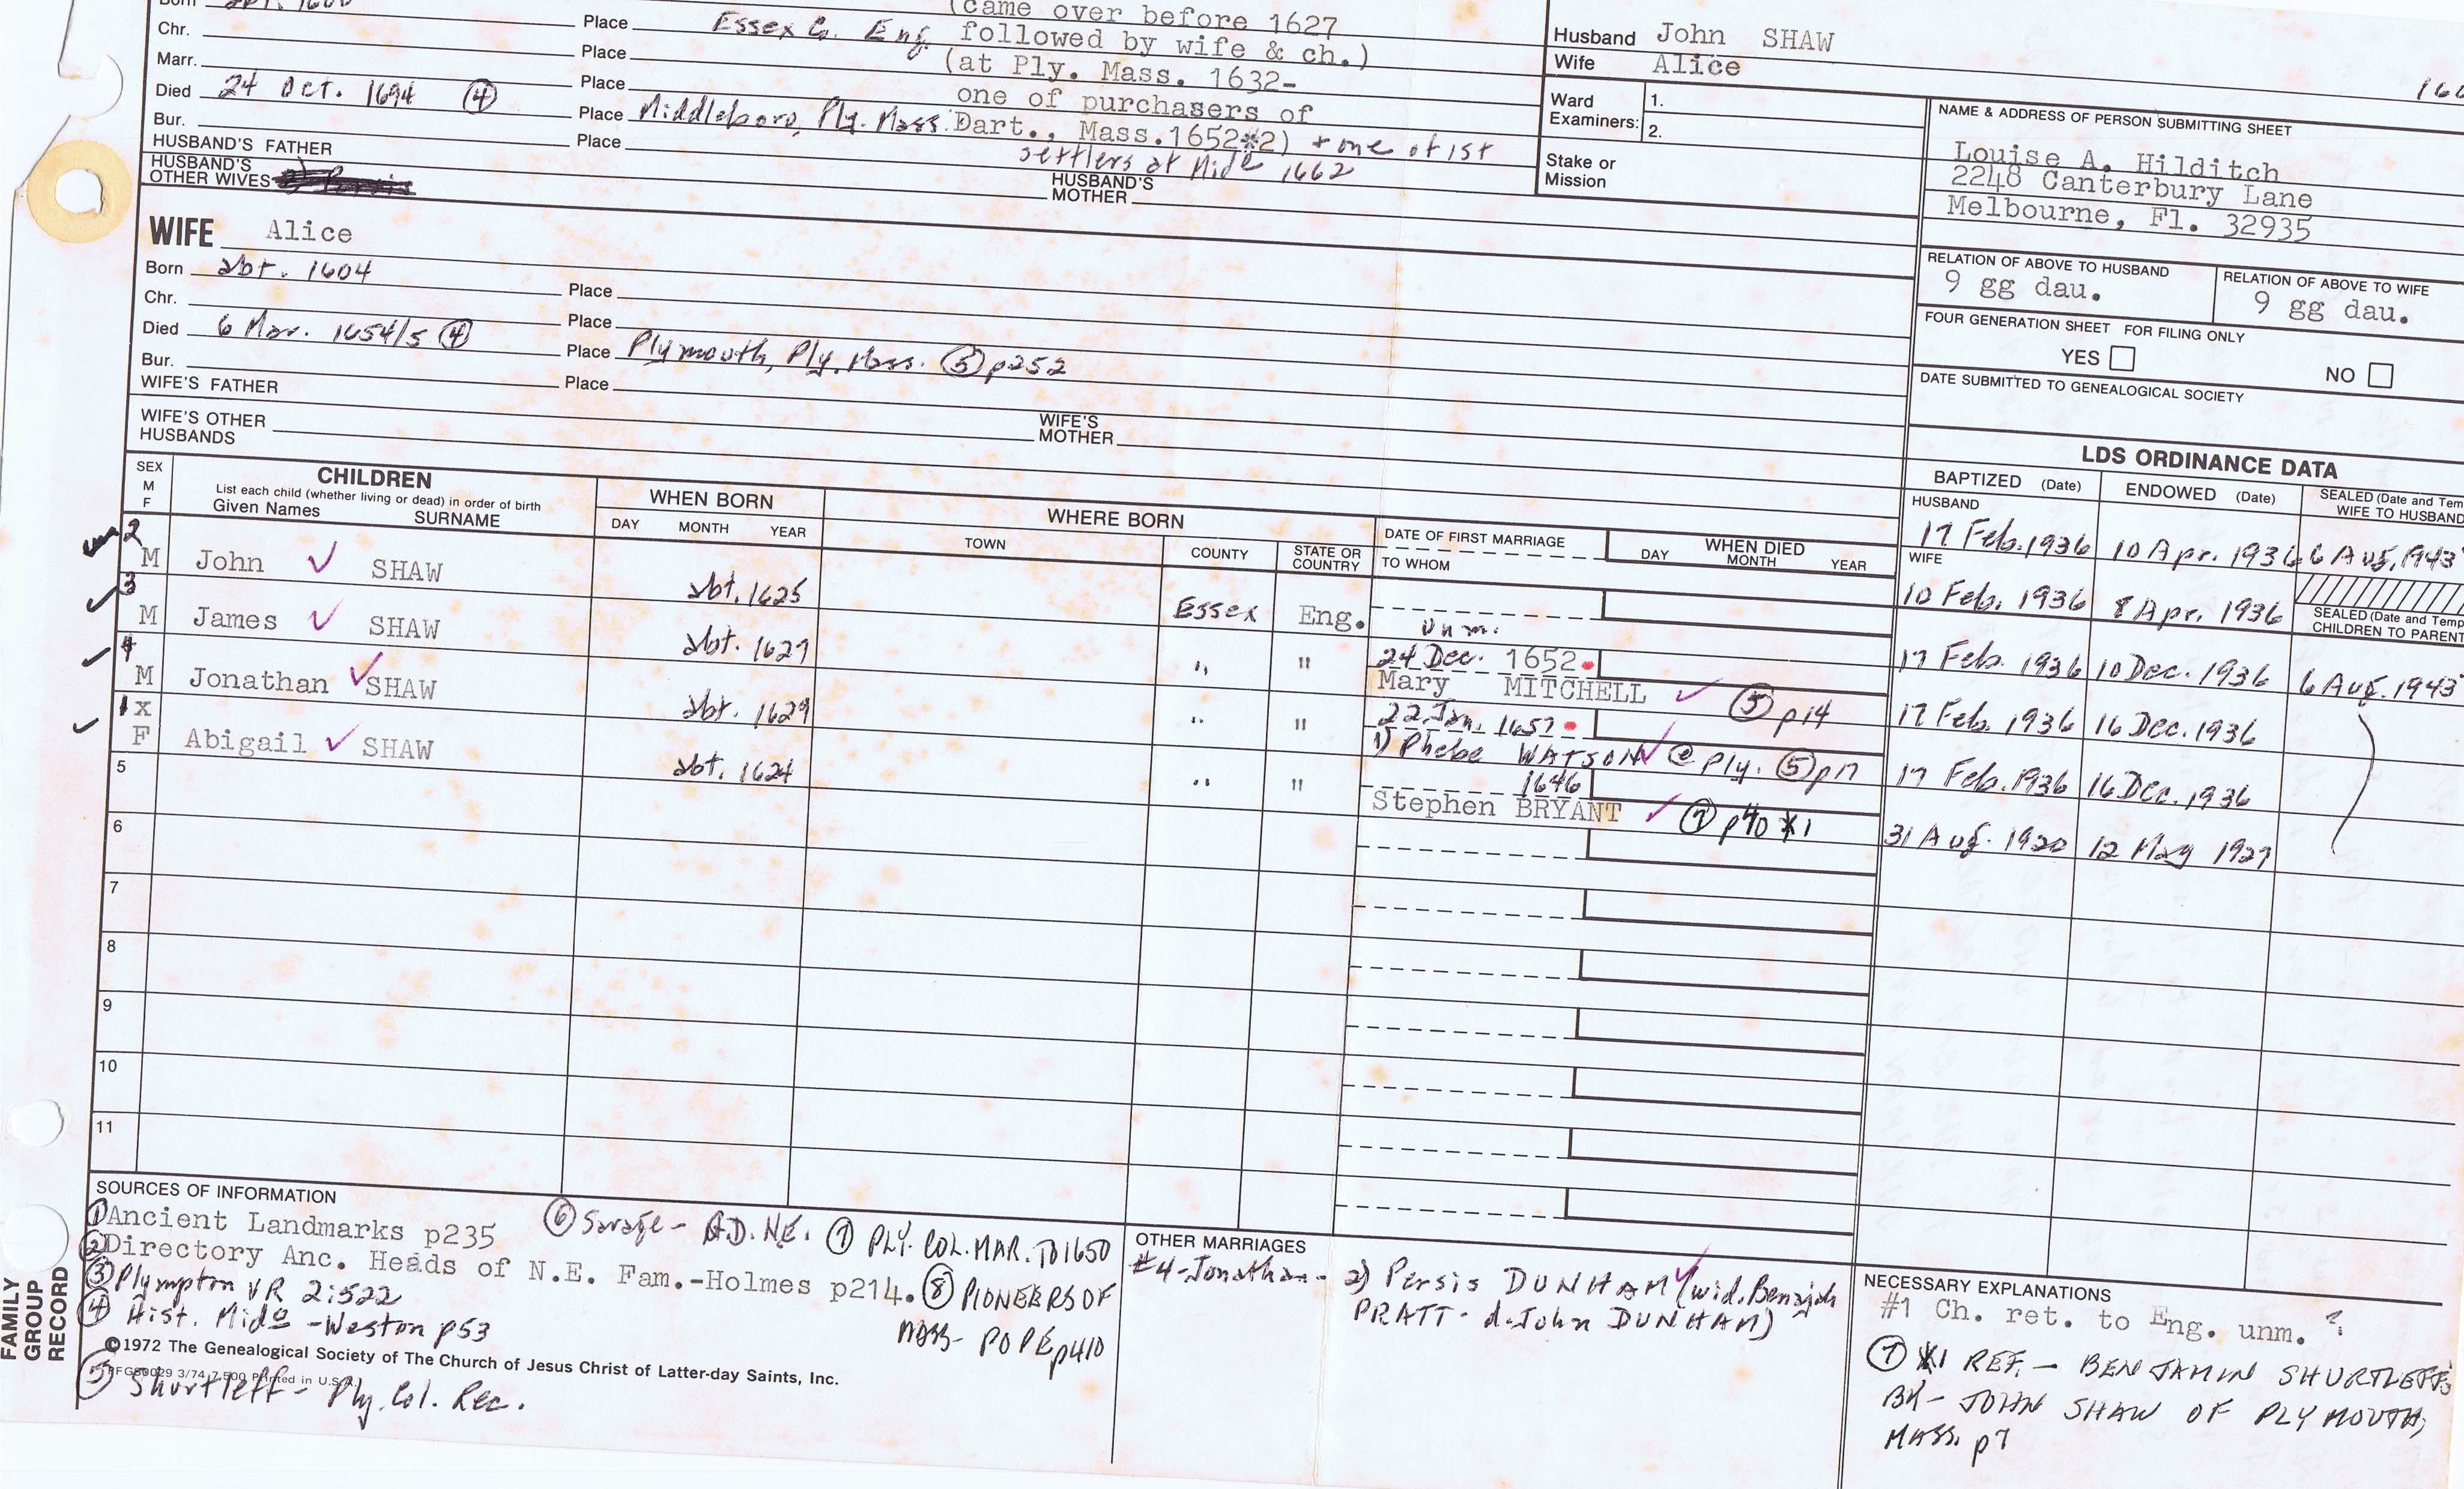 Born abt. 1600 Place Essex Co. Eng. (came over before 1627
Chr. Place followed by wife & ch.)
Marr. Place (at Ply. Mass. 1632-
Died 24 Oct. 1694 ④ Place Middleboro, Ply. Mass. one of purchasers of
Bur. Place Dart., Mass.1652#2) + one of 1st
settlers at Midᵒ 1662
HUSBAND'S FATHER
HUSBAND'S MOTHER
HUSBAND'S OTHER WIVES
Husband John SHAW
Wife Alice
Ward Examiners: 1.
2.
Stake or Mission
NAME & ADDRESS OF PERSON SUBMITTING SHEET
Louise A. Hilditch
2248 Canterbury Lane
Melbourne, Fl. 32935
RELATION OF ABOVE TO HUSBAND
9 gg dau.
RELATION OF ABOVE TO WIFE
9 gg dau.
FOUR GENERATION SHEET FOR FILING ONLY
YES NO
DATE SUBMITTED TO GENEALOGICAL SOCIETY
WIFE Alice
Born abt. 1604 Place
Chr. Place
Died 6 Mar. 1654/5 ④ Place Plymouth, Ply. Mass. ⑤ p252
Bur. Place
WIFE'S FATHER
WIFE'S MOTHER
WIFE'S OTHER HUSBANDS
LDS ORDINANCE DATA
BAPTIZED (Date) ENDOWED (Date) SEALED (Date and Tem
WIFE TO HUSBAND
HUSBAND
17 Feb. 1936 10 Apr. 1936 6 Aug. 1943
WIFE
10 Feb. 1936 8 Apr. 1936
SEALED (Date and Temp
CHILDREN TO PARENT
SEX M F
CHILDREN
List each child (whether living or dead) in order of birth
Given Names SURNAME
WHEN BORN
DAY MONTH YEAR
WHERE BORN
TOWN COUNTY STATE OR COUNTRY
DATE OF FIRST MARRIAGE
TO WHOM
WHEN DIED
DAY MONTH YEAR
2 M John ✓ SHAW abt. 1625 Essex Eng. unm. 17 Feb. 1936 10 Dec. 1936 6 Aug. 1943
3 M James ✓ SHAW abt. 1627 " " 24 Dec. 1652 Mary MITCHELL ✓ ⑤ p14 17 Feb. 1936 16 Dec. 1936
4 M Jonathan ✓ SHAW abt. 1629 " " 22 Jan. 1657 1) Phebe WATSON ✓ @ Ply. ⑤ p17 17 Feb. 1936 16 Dec. 1936
1 X F Abigail ✓ SHAW abt. 1624 " " 1646 Stephen BRYANT ✓ ⑦ p40 *1 31 Aug. 1920 12 May 1927
5
6
7
8
9
10
11
SOURCES OF INFORMATION
① Ancient Landmarks p235
② Directory Anc. Heads of N.E. Fam.-Holmes p214.
③ Plympton VR 2:522
④ Hist. Midᵒ -Weston p53
⑤ Shurtleff- Ply. Col. Rec.
⑥ Savage- G.D. N.E.
⑦ PLY. COL. MAR. TO 1650
⑧ PIONEERS OF
MASS- POPE p410
©1972 The Genealogical Society of The Church of Jesus Christ of Latter-day Saints, Inc.
3/74 Printed in U.S.
FAMILY GROUP RECORD
OTHER MARRIAGES
#4-Jonathan- 2) Persis DUNHAM ✓ (wid. Benajah
PRATT- d. John DUNHAM)
NECESSARY EXPLANATIONS
#1 Ch. ret. to Eng. unm. ?
⑦ *1 REF. - BENJAMIN SHURTLEFF'S
BK- JOHN SHAW OF PLYMOUTH,
MASS. p7